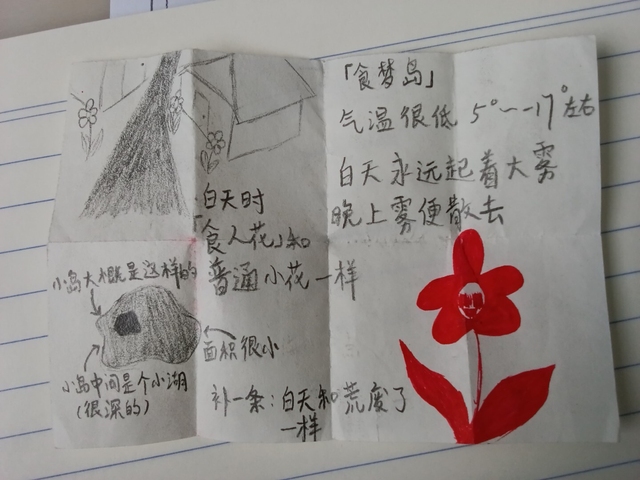 「食梦岛」
气温很低 5°~-17°左右
白天永远起着大雾
晚上雾便散去
白天时
「食人花」和
普通小花一样
小岛大概是这样的
面积很小
小岛中间是个小湖
(很深的)
补一条：白天和荒废了
一样